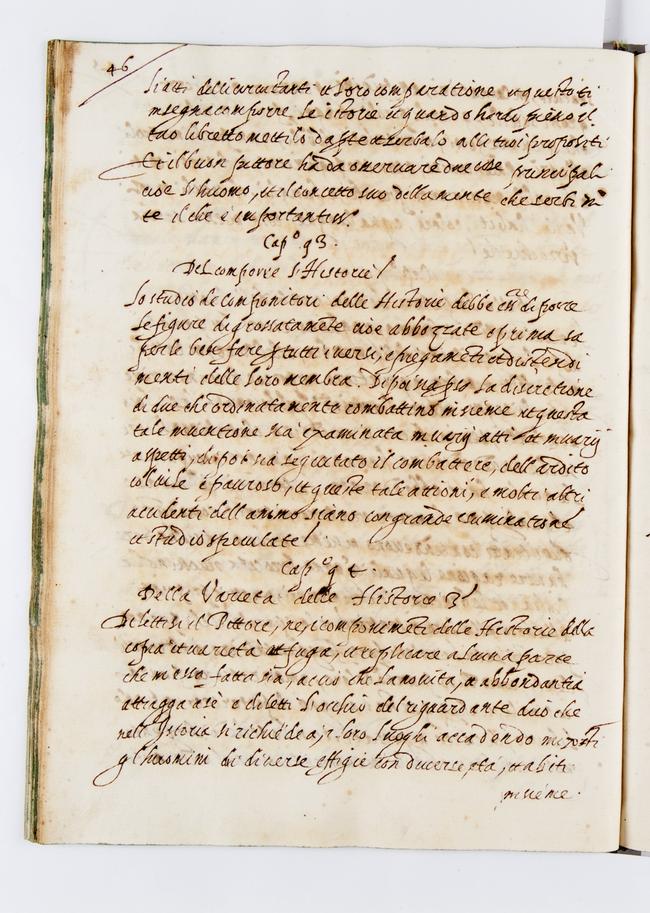 46
li atti delli circustanti et loro comparatione et questo ti
insegna comporre le istorie et quando harai pieno il
tuo libretto mettilo da parte et serbalo alli tuoi propositi
Et il buon pittore ha da osservare due cose principali
cioe l'huomo, et il concetto suo della mente che serbi in
te il che è importantiss.º
Cap.º 93.
Del comporre l'Historie
Lo studio de componitori delle Historie debbe ess.re di porre
le figure digrossatamẽte cioe abbozzate e prima sa
perle ben fare p tutti i versi, e piegamẽti et distendi
menti delle loro membra. Dipoi sia p.sa la discretione
di due che ordinatamente combattino insieme et questa
tale inventione sia examinata in varij atti et in varij
aspetti, dipoi sia seguitato il combattere, dell'ardito
col vile e pauroso, et queste tale attioni, e molti altri
accidenti dell'animo siano con grande esaminatione
et studio speculate
Cap.º 94.
Della Varieta delle Historie
Dilettisi il Pittore, ne, i componimẽti delle Historie della
copia et varietà et fuga, il replicare alcuna parte
che in essa fatta sia, acciò che la novita, et abbondantia
attragga a sè e diletti l'occhio del riguardante dico che
nell'Istoria si richiede a, i loro luoghi accadendo misti
gl'huomini di diverse effigie con diverse età, et abiti
insieme.